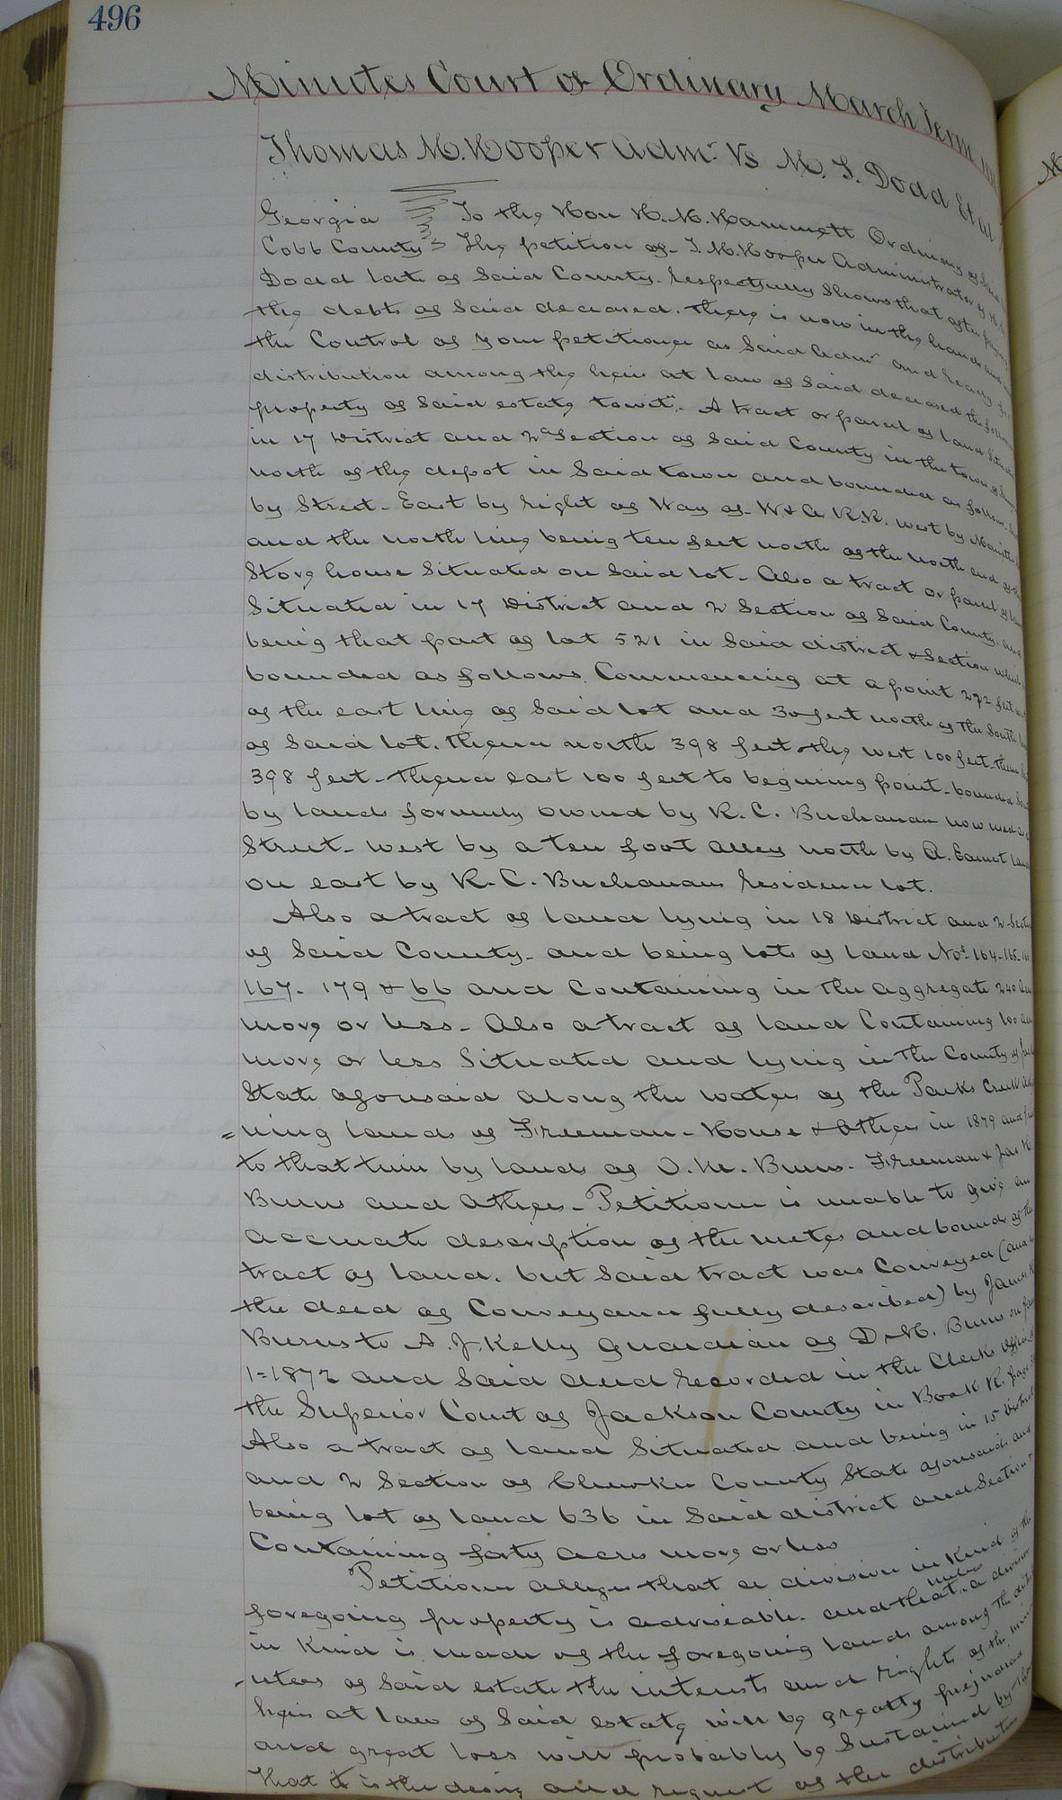 496
Minutes Court of Ordinary March Term
Thomas M. Hooper Admr. vs M. T. Dodd Et al
Georgia } To the Hon H. M. Hammett Ordinary of Said
Cobb County } The petition of T. M. Hooper Administrator of
Dodd late of Said County. respectfully Shows that after paying
the debts of Said deceased. there is now in the hands and in
the Control of your petitioner as Said Admr and ready for
distribution among the heirs at law of Said deceased the following
property of Said estate towit: A tract or parcel of land Situated
in 17 District and 2nd Section of Said County in the town of
north of the depot in Said town and bounded as follows.
by Street. East by right of Way of W. & A R.R. west by
and the north line being ten feet north of the north end of the
Store house Situated on Said lot. Also a tract or parcel of land
Situated in 17 District and 2 Section of Said County. and
being that part of lot 521 in Said district & Section which is
bounded as follows. Commencing at a point 272 feet west
of the east line of Said lot and 30 feet north of the South line
of Said lot. thence north 398 feet the west 100 feet. thence
398 feet. thence east 100 feet to begining point. bounded
by lands formerly owned by R. C. Buchanan now used as a
Street. West by a ten foot alley north by A. land
on east by R. C. Buchanans residence lot.
Also a tract of land lying in 18 District and 2 Section
of Said County. and being lots of land Nos. 164-165-
167- 179 & 66 and Containing in the aggregate 240 acres
more or less. Also a tract of land Containing 100 acres
more or less Situated and lying in the County of
State aforesaid along the waters of the Parks Creek
=ning lands of Freeman - House & Others in 1879 and
to that time by lands of O. M. Burns. Freeman &
Burns and Others. Petitioner is unable to give an
accurate description of the metes and bounds of the
tract of land. but Said tract was Conveyed (and
the deed of Conveyance fully described) by James
Burns to A. J. Kelly guardian of D. M. Burns on
1=1872 and Said deed recorded in the Clerks Office
the Superior Court of Jackson County in Book R. page
Also a tract of land Situated and being in 15 District
and 2 Section of Cherokee County State aforesaid. and
being lot of land 636 in Said district and Section
Containing forty acres more or less
Petitioner alleges that a division in Kind of the
foregoing property is adviseable. and that unless a division
in Kind is made of the foregoing lands among the
-utees of Said estate the interests and rights of the
heirs at law of Said estate will be greatly prejudiced
and great loss will probably be Sustained by them
That it is the desire and request of the distributees